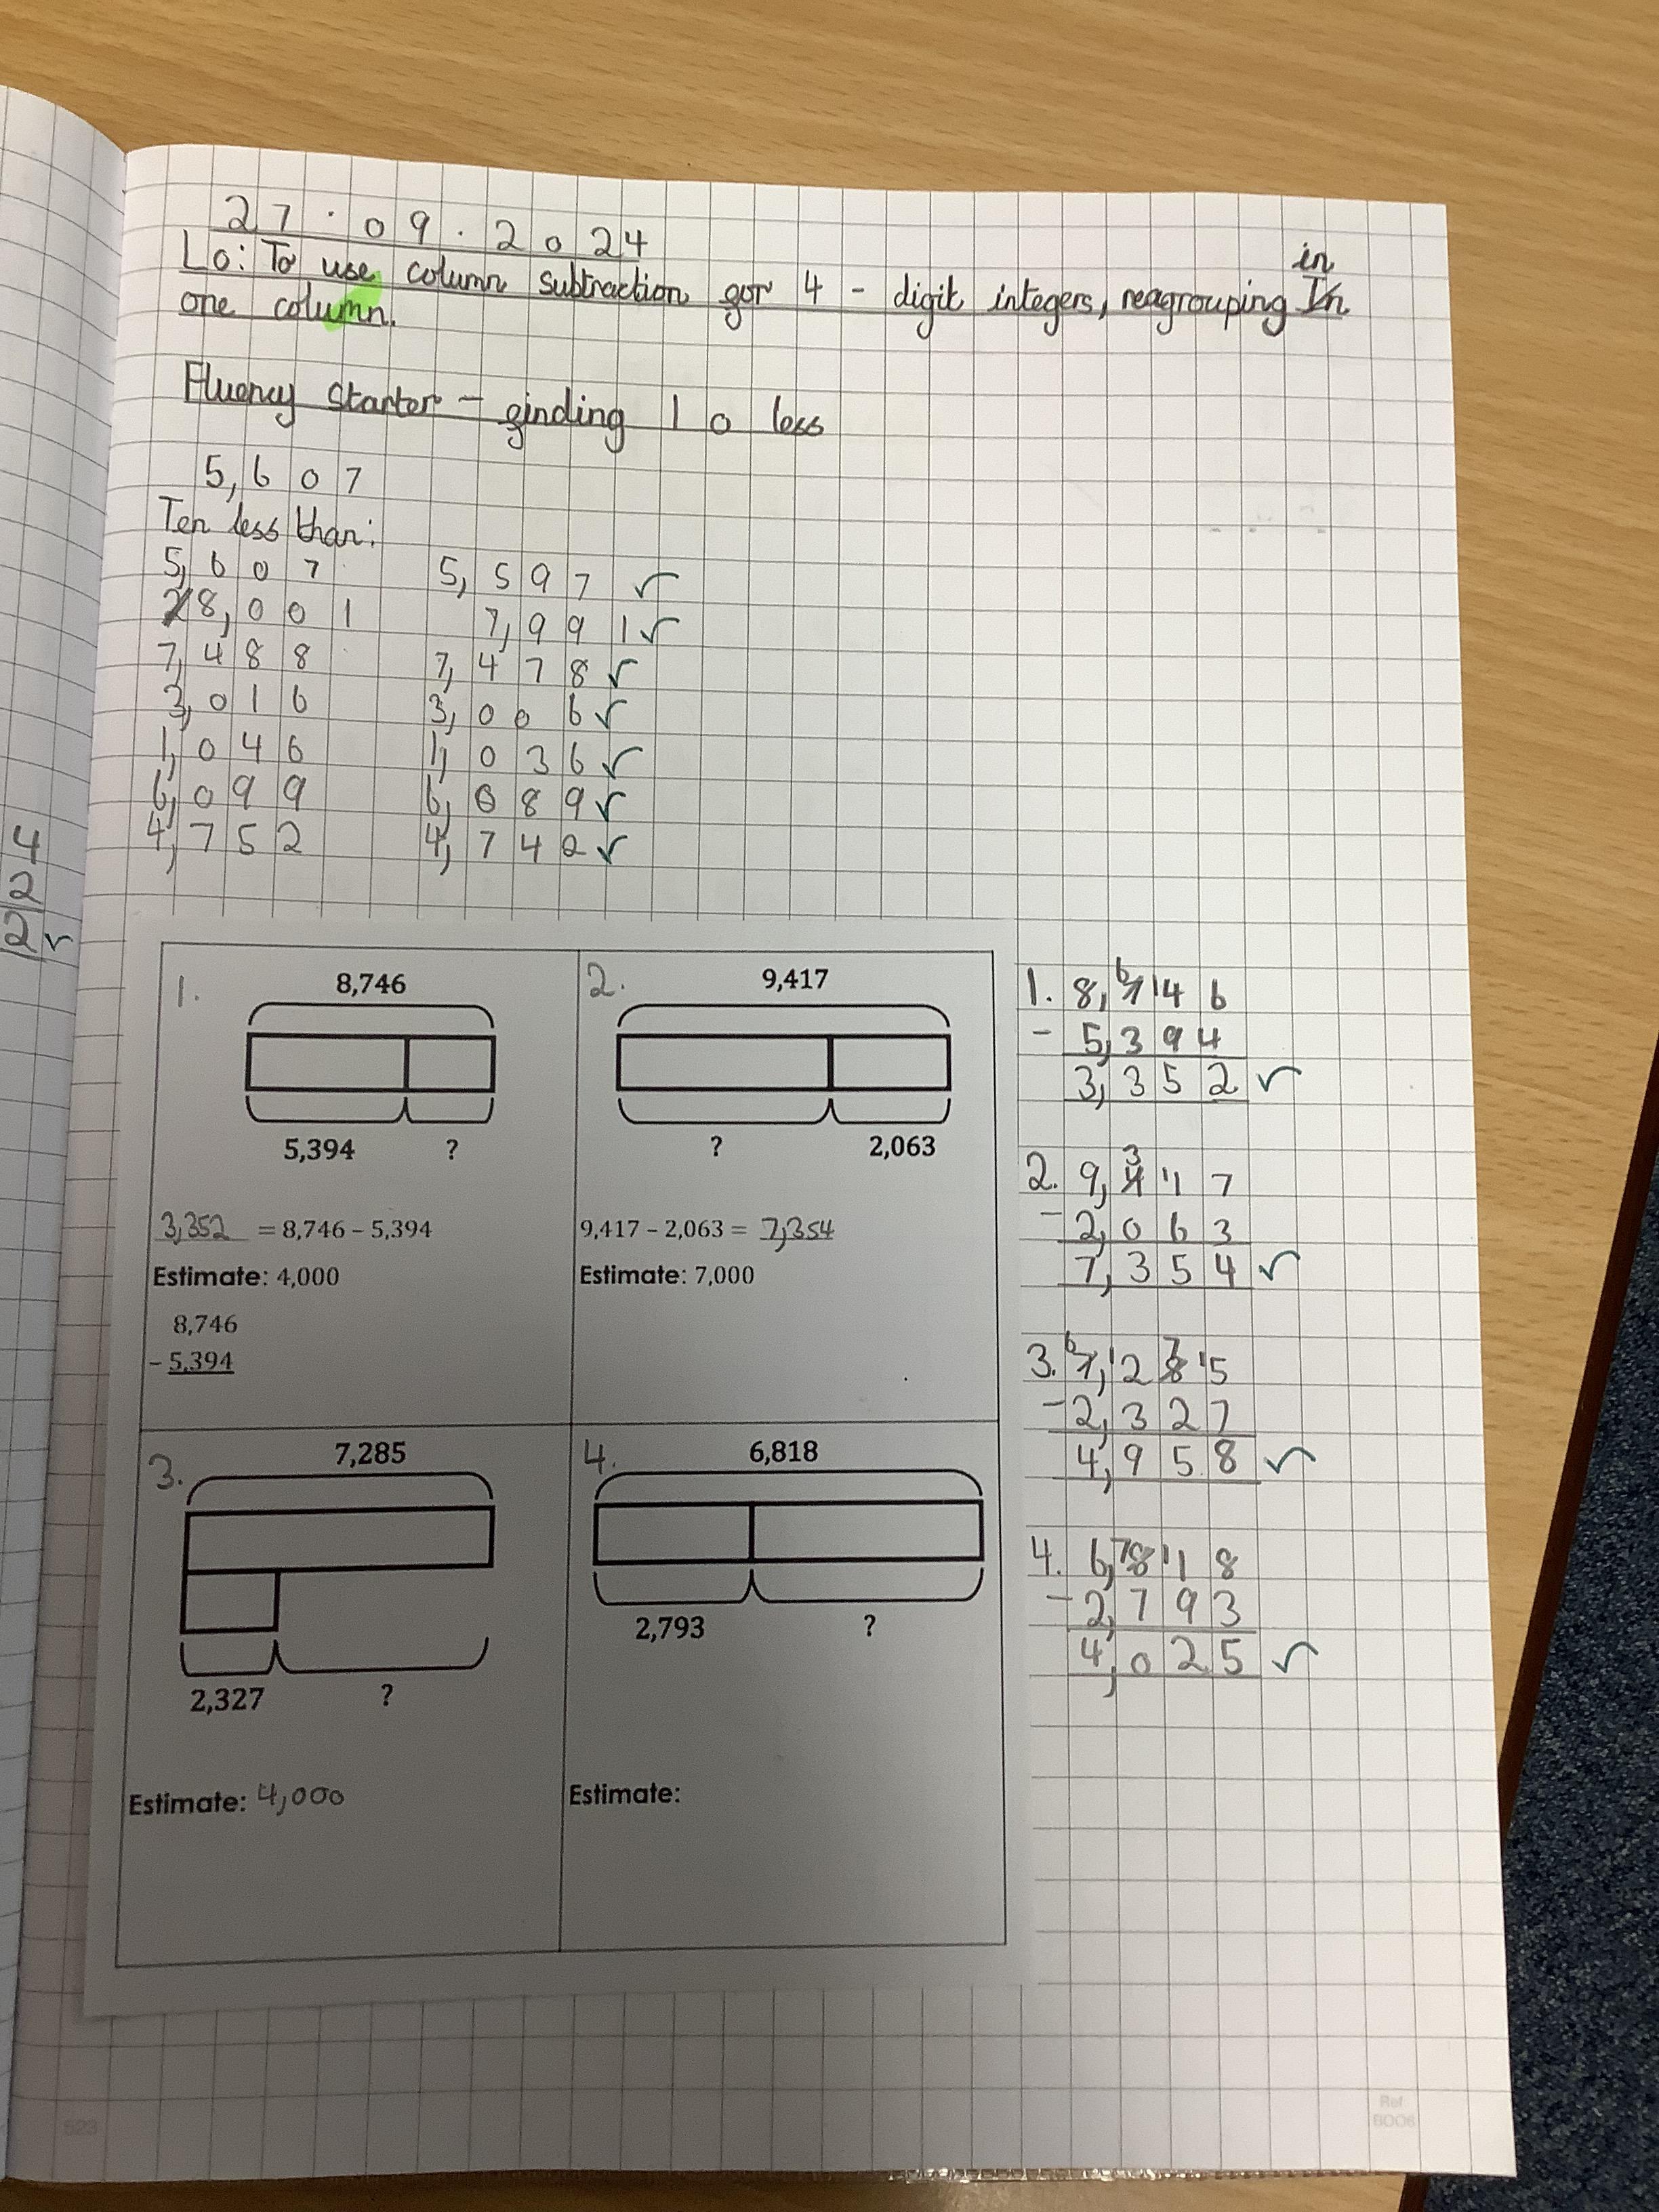 27.09.2024
in
Lo: To use column subtraction gor 4-digit integers, reagrouping In
one column.
Fluency Starter - ginding 10 less
5,607
Ten less than:
5,607 5,597 ✓
8,001 7,991 ✓
7,488 7,478 ✓
3,016 3,006 ✓
1,046 1,036 ✓
6,099 6,089 ✓
4,752 4,742 ✓
4
2
2 ✓
1.
8,746
5,394 ?
3,352 = 8,746 – 5,394
Estimate: 4,000
8,746
– 5,394
2.
9,417
? 2,063
9,417 – 2,063 = 7,354
Estimate: 7,000
3.
7,285
2,327 ?
Estimate: 4,000
4.
6,818
2,793 ?
Estimate:
6 1
1. 8,746
- 5,394
3,352 ✓
3 1
2. 9,417
- 2,063
7,354 ✓
6 1 7 1
3. 7,285
- 2,327
4,958 ✓
7 1
4. 6,818
- 2,793
4,025 ✓
523
Ref
BOO6